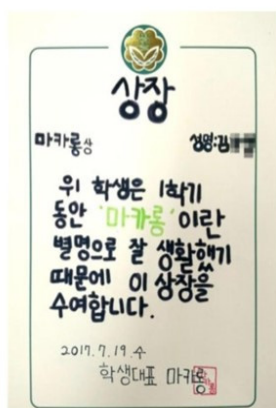 상장
마카롱상 성명:김
위 학생은 1학기
동안 '마카롱'이란
별명으로 잘 생활했기
때문에 이 상장을
수여합니다.
2017.7.19.수
학생대표 마카롱